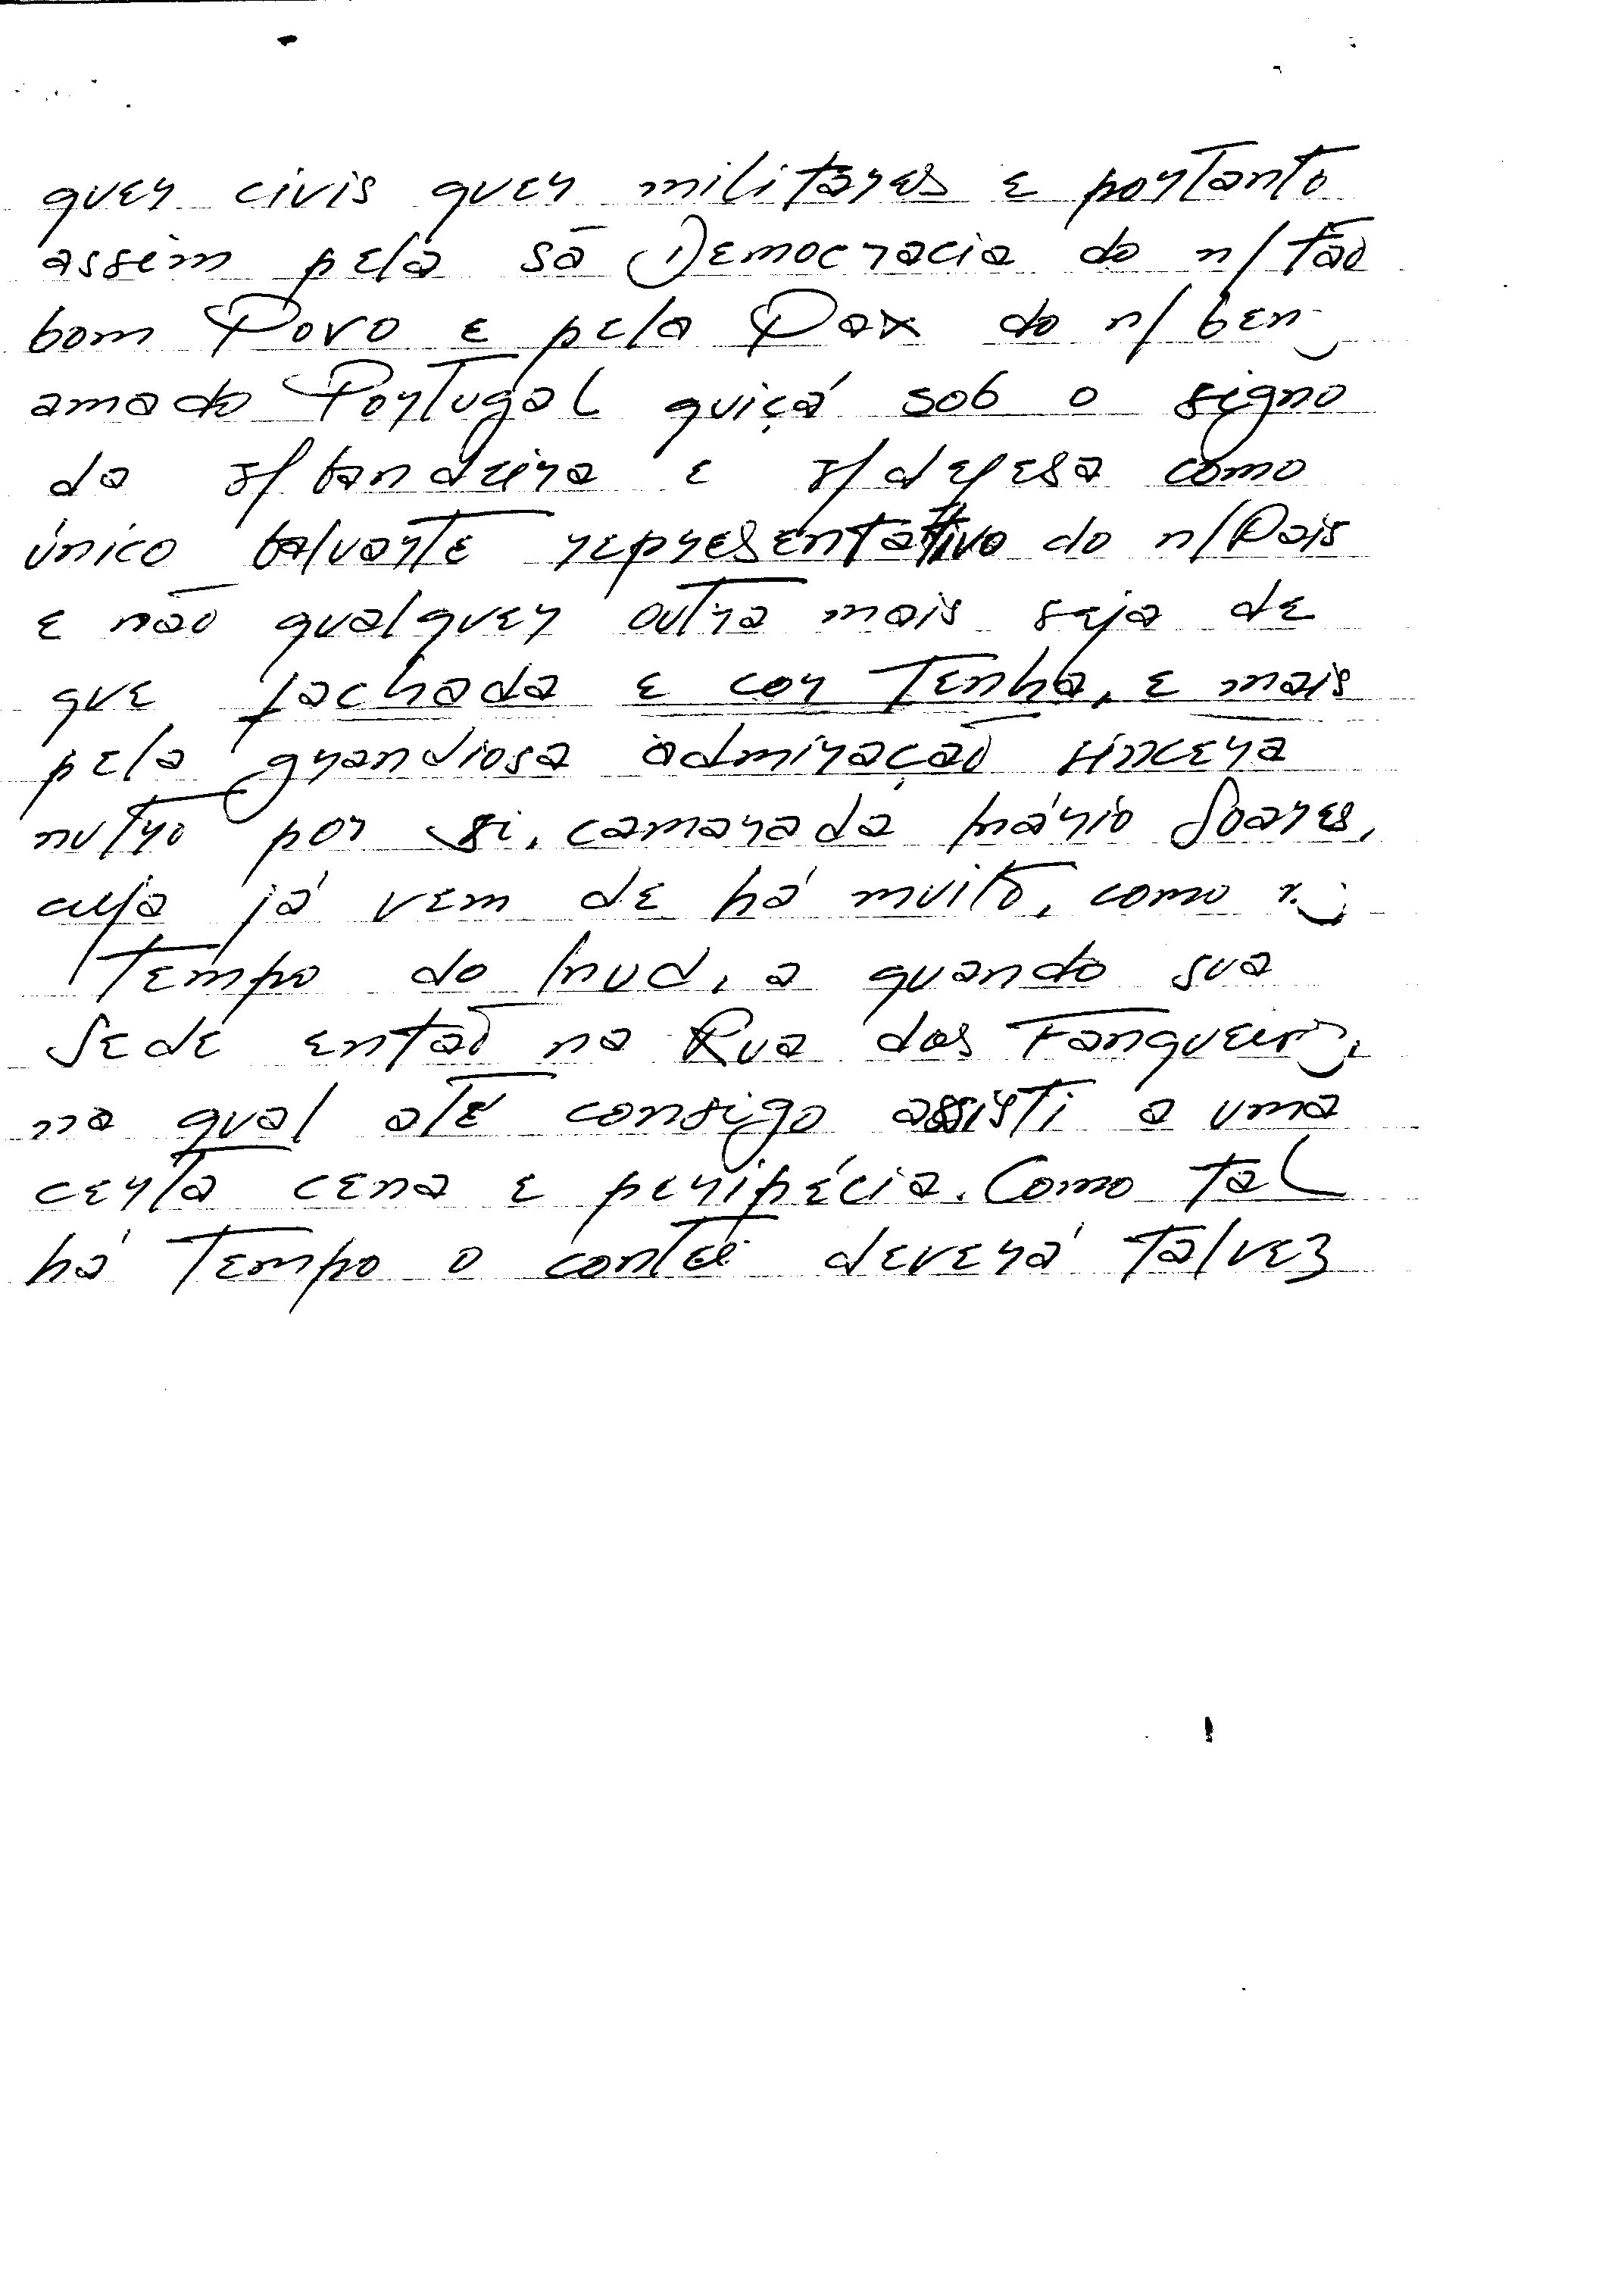 quer civis quer militares e portanto
assim pela sã Democracia do n/ tão
bom Povo e pela Pax do n/ bem
amado Portugal quiçá sob o signo
da s/ bandeira e s/ defesa como
único baluarte representativo do n/ País
e não qualquer outra mais seja de
que fachada e cor tenha, e mais
pela grandiosa admiração sincera
nutro por si, camarada Mário Soares,
cuja já vem de há muito, como
Tempo do Mud, a quando sua
Sede então na Rua dos Fanqueiros,
na qual até consigo assisti a uma
certa cena e peripécia. Como tal
há Tempo o contei deverá talvez